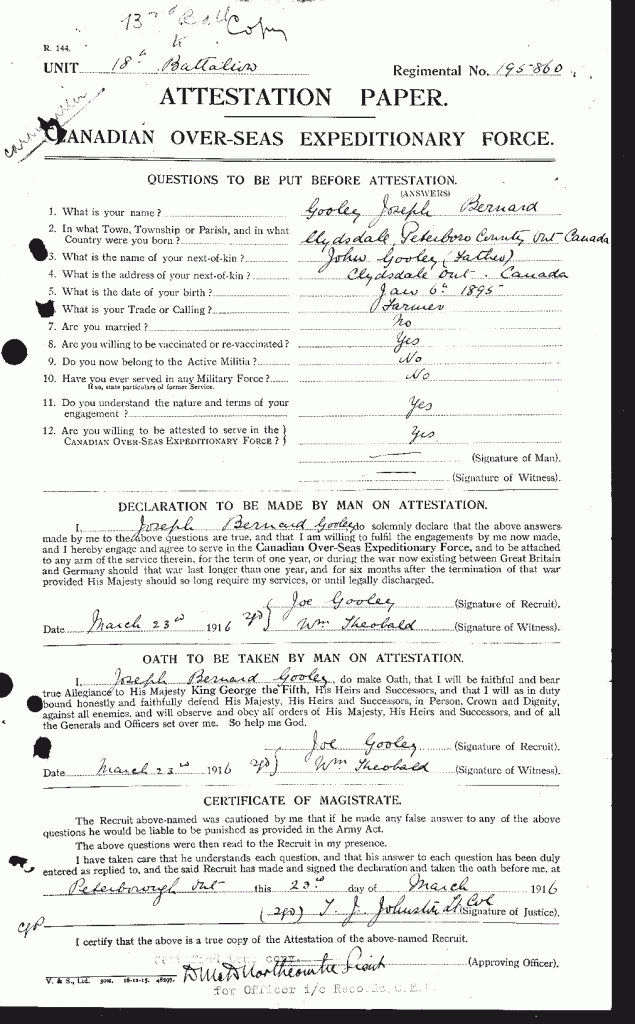 Copy
R. 144.
UNIT 18th Battalion
Regimental No. 195-860
ATTESTATION PAPER.
CANADIAN OVER-SEAS EXPEDITIONARY FORCE.
QUESTIONS TO BE PUT BEFORE ATTESTATION.
(ANSWERS)
1. What is your name? Gooley Joseph Bernard
2. In what Town, Township or Parish, and in what
Country were you born? Clydsdale, Peterboro County Ont Canada
3. What is the name of your next-of-kin? John Gooley (Father)
4. What is the address of your next-of-kin? Clydsdale Ont. Canada
5. What is the date of your birth? Jan 6th 1895
6. What is your Trade or Calling? Farmer
7. Are you married? No
8. Are you willing to be vaccinated or re-vaccinated? Yes
9. Do you now belong to the Active Militia? No
10. Have you ever served in any Military Force? No
If so, state particulars of former Service.
11. Do you understand the nature and terms of your
engagement? Yes
12. Are you willing to be attested to serve in the
CANADIAN OVER-SEAS EXPEDITIONARY FORCE? Yes
(Signature of Man).
(Signature of Witness).
DECLARATION TO BE MADE BY MAN ON ATTESTATION.
I, Joseph Bernard Gooley do solemnly declare that the above answers
made by me to the above questions are true, and that I am willing to fulfil the engagements by me now made,
and I hereby engage and agree to serve in the Canadian Over-Seas Expeditionary Force, and to be attached
to any arm of the service therein, for the term of one year, or during the war now existing between Great Britain
and Germany should that war last longer than one year, and for six months after the termination of that war
provided His Majesty should so long require my services, or until legally discharged.
Joe Gooley (Signature of Recruit).
Date March 23rd 1916 sgd Wm Theobald (Signature of Witness).
OATH TO BE TAKEN BY MAN ON ATTESTATION.
I, Joseph Bernard Gooley, do make Oath, that I will be faithful and bear
true Allegiance to His Majesty King George the Fifth, His Heirs and Successors, and that I will as in duty
bound honestly and faithfully defend His Majesty, His Heirs and Successors, in Person, Crown and Dignity,
against all enemies, and will observe and obey all orders of His Majesty, His Heirs and Successors, and of all
the Generals and Officers set over me. So help me God.
Joe Gooley (Signature of Recruit)
Date March 23rd 1916 sgd Wm Theobald (Signature of Witness).
CERTIFICATE OF MAGISTRATE.
The Recruit above-named was cautioned by me that if he made any false answer to any of the above
questions he would be liable to be punished as provided in the Army Act.
The above questions were then read to the Recruit in my presence.
I have taken care that he understands each question, and that his answer to each question has been duly
entered as replied to, and the said Recruit has made and signed the declaration and taken the oath before me, at
Peterborough Ont this 23rd day of March 1916
(sgd) T. J. Johnston Lt Col (Signature of Justice).
I certify that the above is a true copy of the Attestation of the above-named Recruit.
Certified true copy.
Lieut (Approving Officer).
V. & S., Ltd. 50M. 18-12-15. 46297.
for Officer i/c Records, C.E.F.